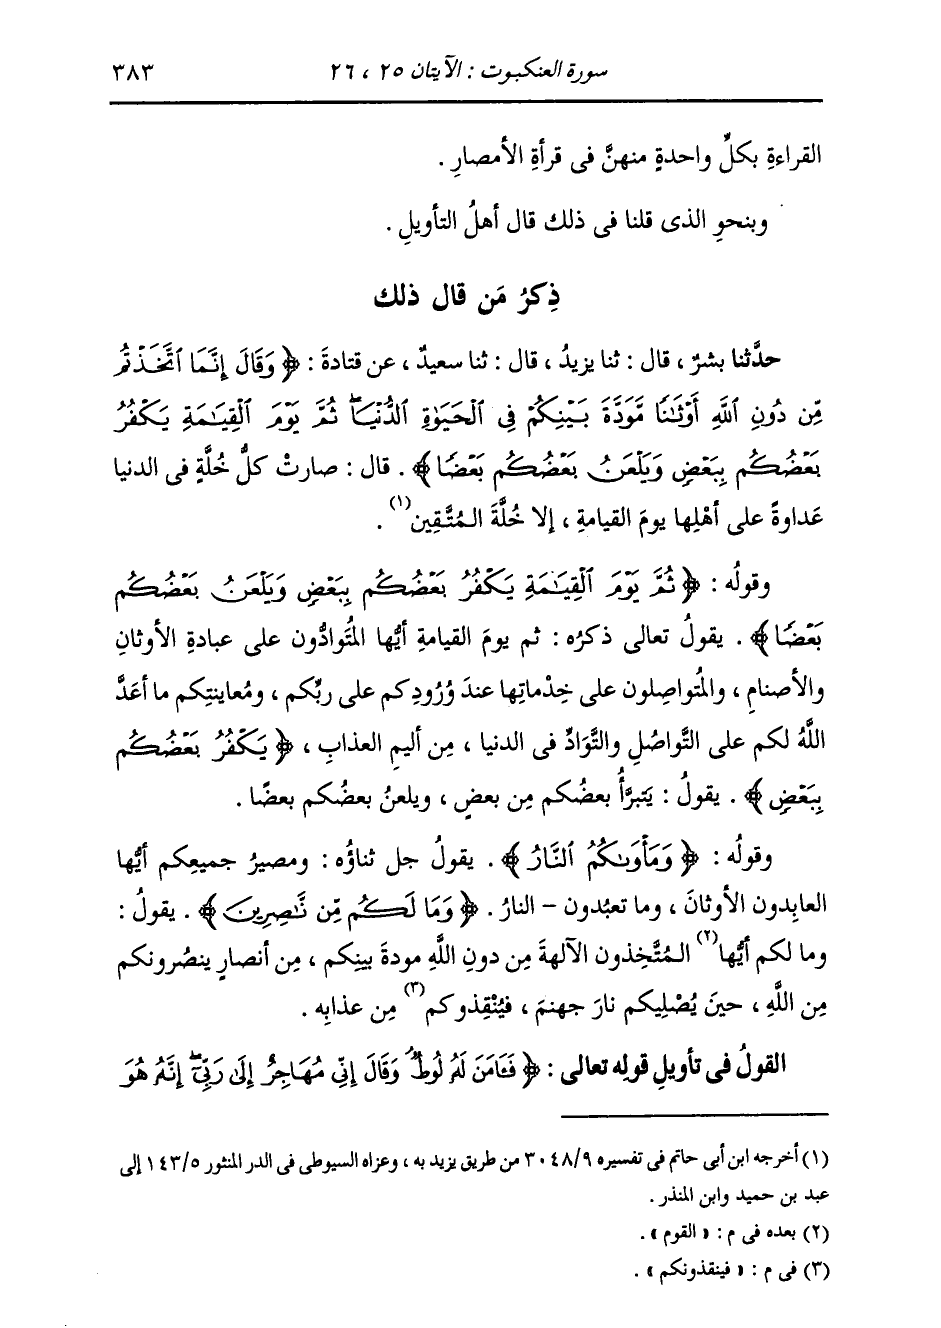 سورة العنكبوت : الآيتان ٢٥ ، ٢٦ ٣٨٣
القراءةِ بكلِّ واحدةٍ منهنَّ فى قرأةِ الأمصارِ .
وبنحوِ الذى قلنا فى ذلك قال أهلُ التأويلِ .
ذِكرُ مَن قال ذلك
حدَّثنا بشرٌ ، قال : ثنا يزيدُ ، قال : ثنا سعيدٌ ، عن قتادةَ : ﴿ وَقَالَ إِنَّمَا ٱتَّخَذْتُم
مِّن دُونِ ٱللَّهِ أَوْثَٰنًا مَّوَدَّةَ بَيْنِكُمْ فِى ٱلْحَيَوٰةِ ٱلدُّنْيَاۖ ثُمَّ يَوْمَ ٱلْقِيَٰمَةِ يَكْفُرُ
بَعْضُكُم بِبَعْضٍ وَيَلْعَنُ بَعْضُكُم بَعْضًا ﴾ . قال : صارتْ كلُّ خُلَّةٍ فى الدنيا
عَداوةً على أهْلِها يومَ القيامةِ ، إلا خُلَّةَ المُتَّقِين(١) .
وقولُه : ﴿ ثُمَّ يَوْمَ ٱلْقِيَٰمَةِ يَكْفُرُ بَعْضُكُم بِبَعْضٍ وَيَلْعَنُ بَعْضُكُم
بَعْضًا ﴾ . يقولُ تعالى ذكرُه : ثم يومَ القيامةِ أيُّها المُتَوادُّون على عبادةِ الأوثانِ
والأصنامِ ، والمُتواصِلون على خِدْماتِها عندَ وُرُودِكم على ربِّكم ، ومُعاينتِكم ما أعَدَّ
اللَّهُ لكم على التَّواصُلِ والتَّوَادِّ فى الدنيا ، مِن أليمِ العذابِ ، ﴿ يَكْفُرُ بَعْضُكُم
بِبَعْضٍ ﴾ . يقولُ : يَتبرَّأُ بعضُكم مِن بعضٍ ، ويلعنُ بعضُكم بعضًا .
وقولُه : ﴿ وَمَأْوَىٰكُمُ ٱلنَّارُ ﴾ . يقولُ جل ثناؤُه : ومصيرُ جميعِكم أيُّها
العابِدون الأوثانَ ، وما تعبُدون – النارُ . ﴿ وَمَا لَكُم مِّن نَّٰصِرِينَ ﴾ . يقولُ :
وما لكم أيُّها(٢) المُتَّخِذون الآلهةَ مِن دونِ اللَّهِ مودةَ بينِكم ، مِن أنصارٍ ينصُرونكم
مِن اللَّهِ ، حينَ يُصْلِيكم نارَ جهنمَ ، فيُنْقِذوكم(٣) مِن عذابِه .
القولُ فى تأويلِ قولِه تعالى : ﴿ فَـَٔامَنَ لَهُۥ لُوطٌۘ وَقَالَ إِنِّى مُهَاجِرٌ إِلَىٰ رَبِّىٓۖ إِنَّهُۥ هُوَ
(١) أخرجه ابن أبى حاتم فى تفسيره ٣٠٤٨/٩ من طريق يزيد به ، وعزاه السيوطى فى الدر المنثور ١٤٣/٥ إلى
عبد بن حميد وابن المنذر .
(٢) بعده فى م : « القوم » .
(٣) فى م : « فينقذونكم » .